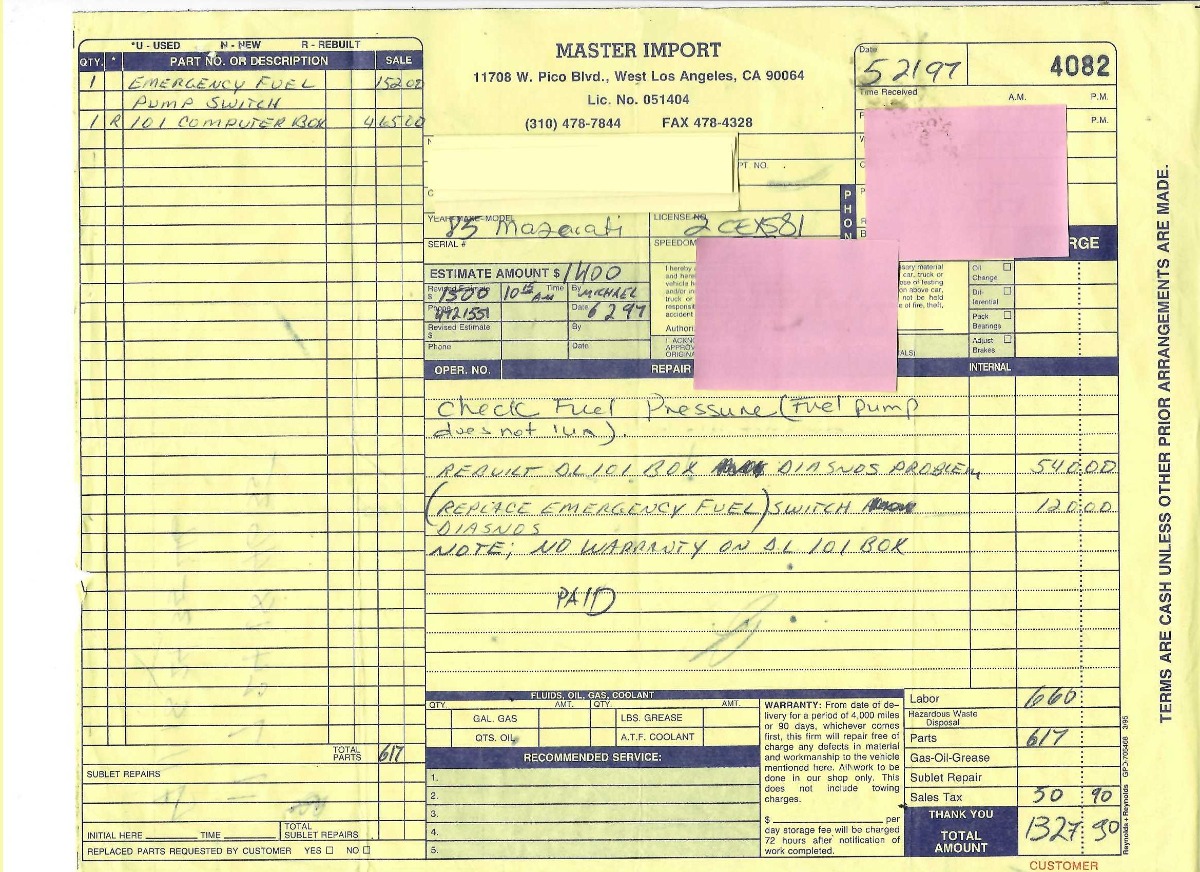 *U - USED N - NEW R - REBUILT
QTY. * PART NO. OR DESCRIPTION SALE
1 EMERGENCY FUEL 152 00
PUMP SWITCH
1 R 101 COMPUTER BOX 465 00
TOTAL PARTS 617
SUBLET REPAIRS
INITIAL HERE TIME TOTAL SUBLET REPAIRS
REPLACED PARTS REQUESTED BY CUSTOMER YES NO
MASTER IMPORT
11708 W. Pico Blvd., West Los Angeles, CA 90064
Lic. No. 051404
(310) 478-7844 FAX 478-4328
Date 5 21 97 4082
Time Received A.M. P.M.
P.M.
PT. NO.
PHON
YEAR-MAKE-MODEL 85 Mazerati LICENSE NO. 2 CEX581
SERIAL # SPEEDOM
RGE
ESTIMATE AMOUNT $ 1400
Revised Estimate $ 1500 10 15 AM Time By MICHAEL
Phone 4421551 Date 6 2 97
Revised Estimate $ By
Phone Date
I hereby
and here
vehicle h
and/or in
truck or
responsit
accident
Authori
I ACKN
APPROV
ORIGINA
ssory material
car, truck or
ose of testing
on above car,
not be held
e of fire, theft,
IALS)
Oil Change
Dif-ferential
Pack Bearings
Adjust Brakes
OPER. NO. REPAIR INTERNAL
Check Fuel Pressure (Fuel pump
does not run).
REBUILT DL 101 BOX DIAGNOS PROBLEM 540 00
(REPLACE EMERGENCY FUEL) SWITCH 120 00
DIAGNOS
NOTE; NO WARRANTY ON DL 101 BOX
PAID
FLUIDS, OIL, GAS, COOLANT
QTY. AMT. QTY. AMT.
GAL. GAS LBS. GREASE
QTS. OIL A.T.F. COOLANT
RECOMMENDED SERVICE:
1.
2.
3.
4.
5.
WARRANTY: From date of de-
livery for a period of 4,000 miles
or 90 days, whichever comes
first, this firm will repair free of
charge any defects in material
and workmanship to the vehicle
mentioned here. All work to be
done in our shop only. This
does not include towing
charges.
$ per
day storage fee will be charged
72 hours after notification of
work completed.
Labor 660
Hazardous Waste Disposal
Parts 617
Gas-Oil-Grease
Sublet Repair
Sales Tax 50 90
THANK YOU
TOTAL AMOUNT 1327 90
CUSTOMER
TERMS ARE CASH UNLESS OTHER PRIOR ARRANGEMENTS ARE MADE.